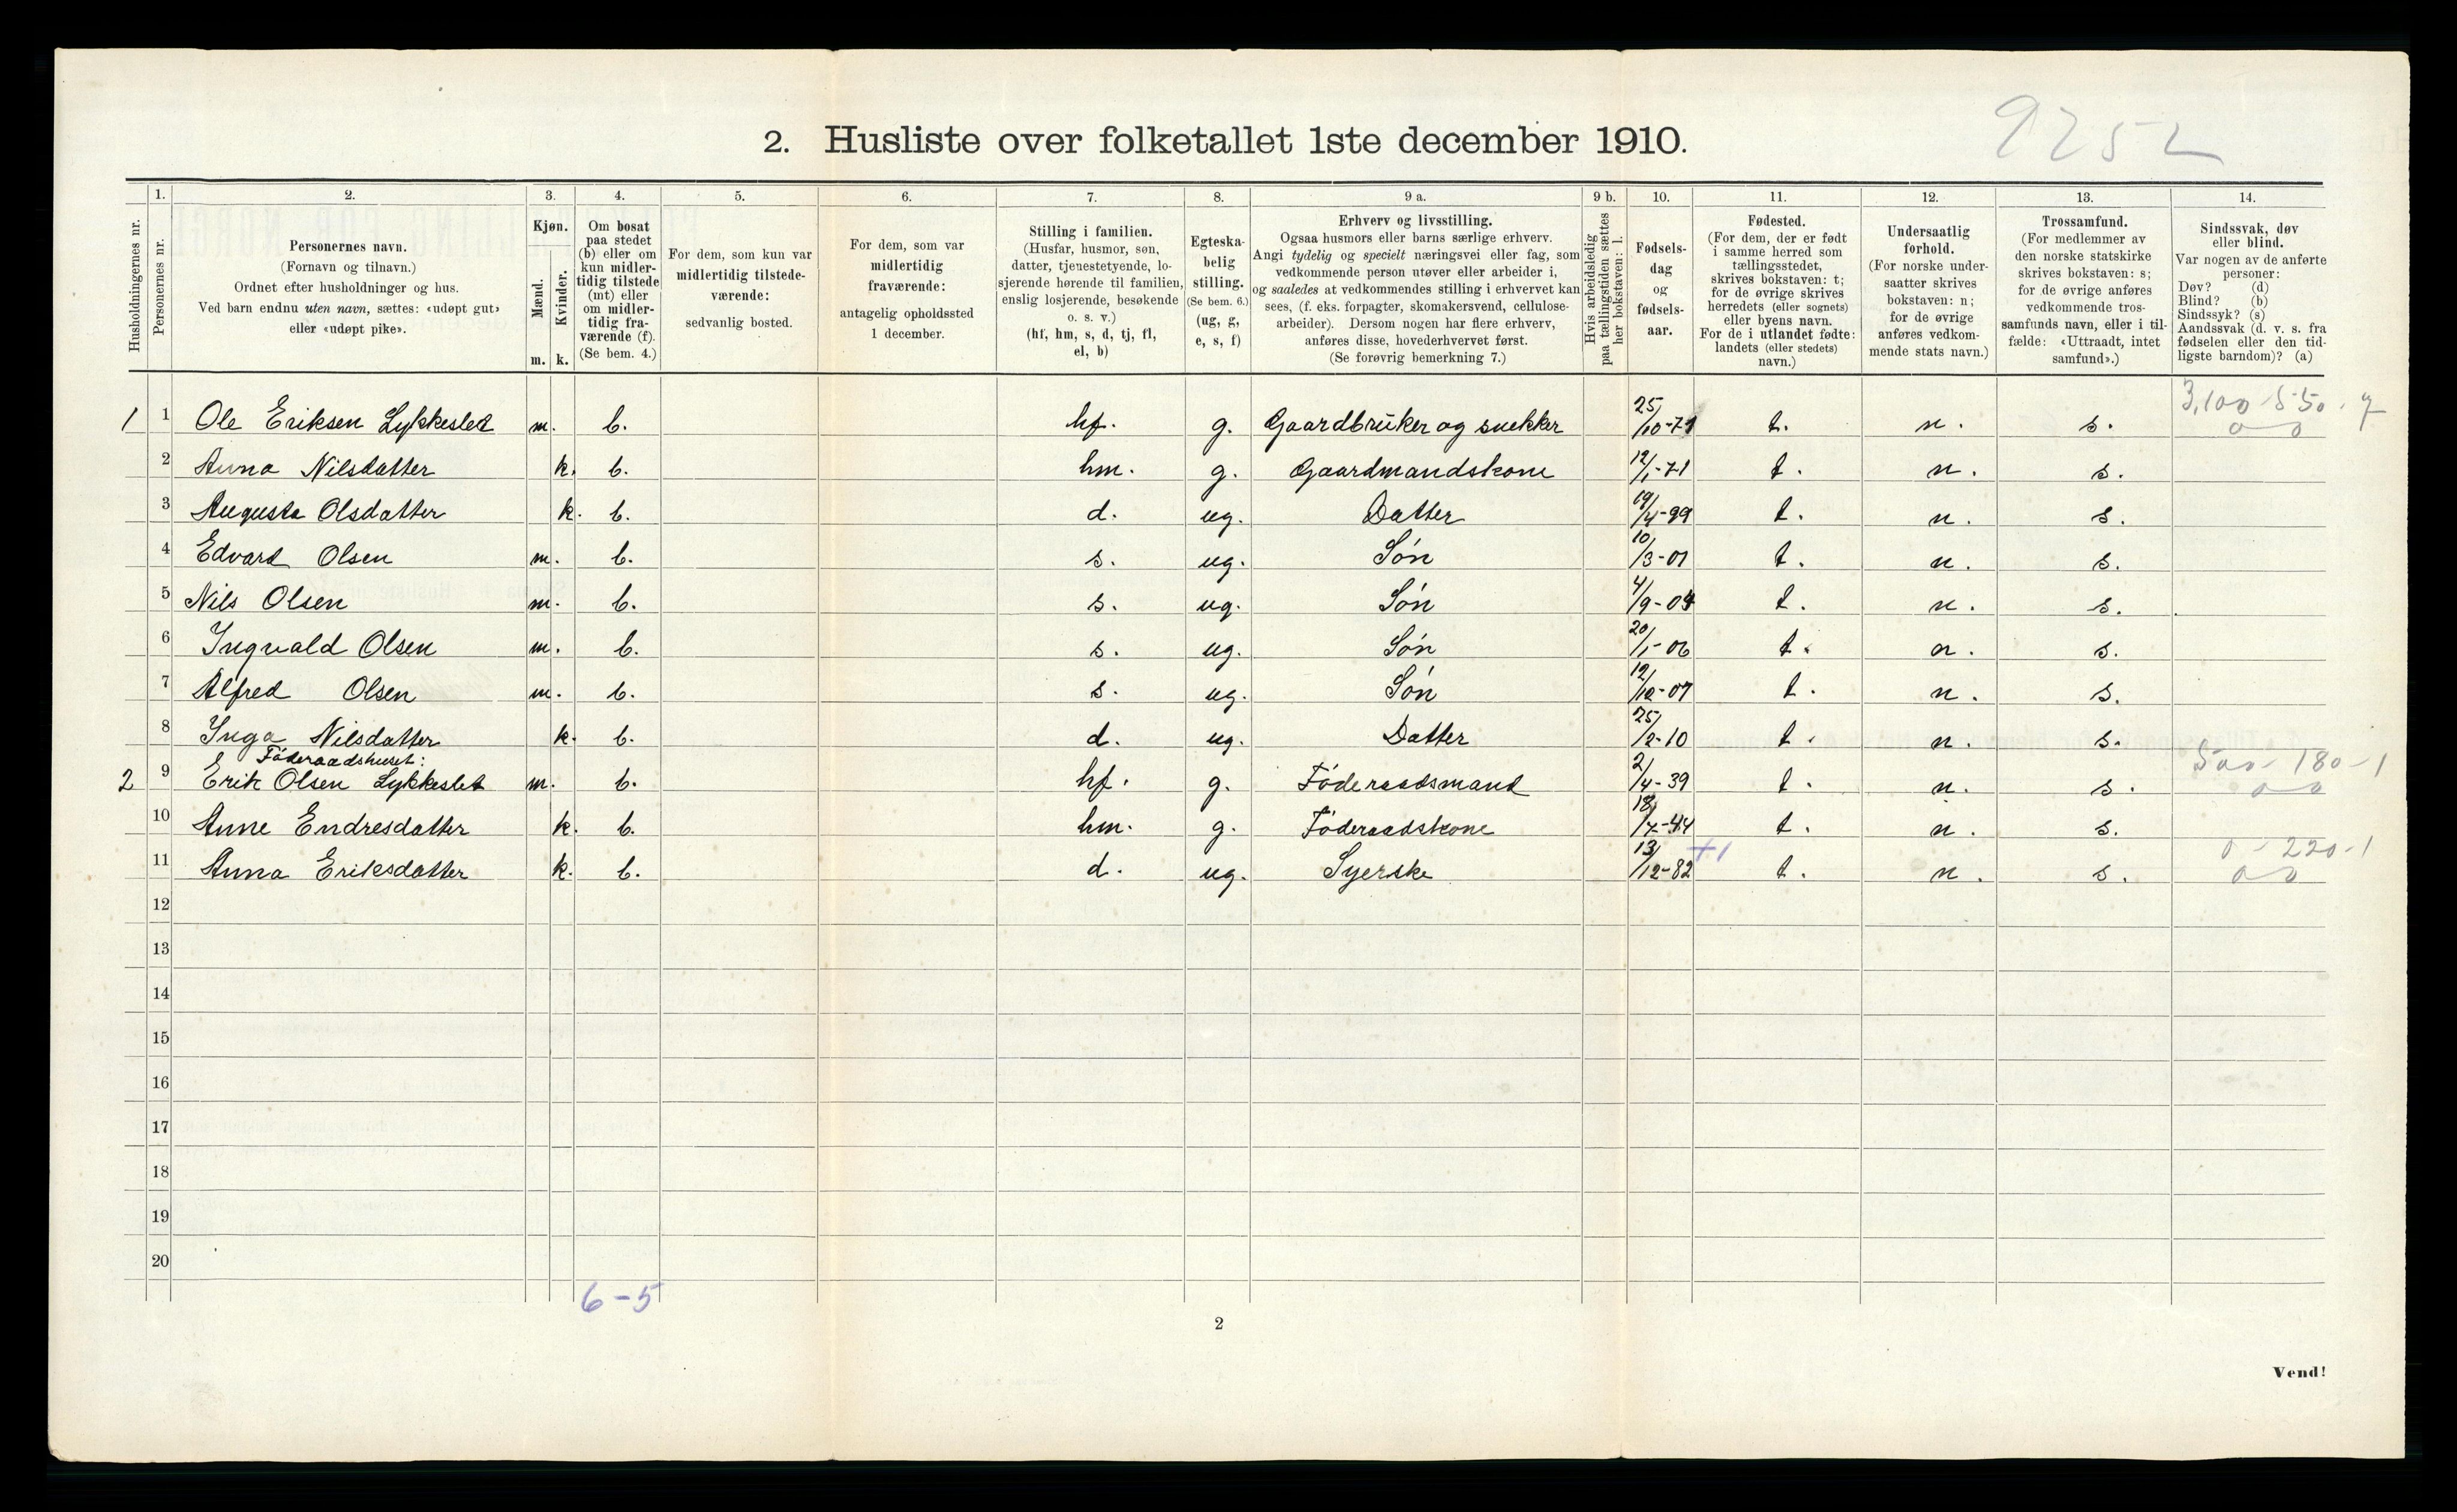 9252
2. Husliste over folketallet 1ste december 1910.
Husholdningernes nr.
1. Personernes nr.
2. Personernes navn. (Fornavn og tilnavn.) Ordnet efter husholdninger og hus. Ved barn endnu uten navn, sættes: «udøpt gut» eller «udøpt pike».
3. Kjøn. Mænd. m. Kvinder. k.
4. Om bosat paa stedet (b) eller om kun midler-tidig tilstede (mt) eller om midler-tidig fra-værende (f). (Se bem. 4.)
5. For dem, som kun var midlertidig tilstede-værende: sedvanlig bosted.
6. For dem, som var midlertidig fraværende: antagelig opholdssted 1 december.
7. Stilling i familien. (Husfar, husmor, søn, datter, tjenestetyende, lo-sjerende hørende til familien, enslig losjerende, besøkende o. s. v.) (hf, hm, s, d, tj, fl, el, b)
8. Egteska-belig stilling. (Se bem. 6.) (ug, g, e, s, f)
9 a. Erhverv og livsstilling. Ogsaa husmors eller barns særlige erhverv. Angi tydelig og specielt næringsvei eller fag, som vedkommende person utøver eller arbeider i, og saaledes at vedkommendes stilling i erhvervet kan sees, (f. eks. forpagter, skomakersvend, cellulose-arbeider). Dersom nogen har flere erhverv, anføres disse, hovederhvervet først. (Se forøvrig bemerkning 7.)
9 b. Hvis arbeidsledig paa tællingstiden sættes her bokstaven: l.
10. Fødsels-dag og fødsels-aar.
11. Fødested. (For dem, der er født i samme herred som tællingsstedet, skrives bokstaven: t; for de øvrige skrives herredets (eller sognets) eller byens navn. For de i utlandet fødte: landets (eller stedets) navn.)
12. Undersaatlig forhold. (For norske under-saatter skrives bokstaven: n; for de øvrige anføres vedkom-mende stats navn.)
13. Trossamfund. (For medlemmer av den norske statskirke skrives bokstaven: s; for de øvrige anføres vedkommende tros-samfunds navn, eller i til-fælde: «Uttraadt, intet samfund».)
14. Sindssvak, døv eller blind. Var nogen av de anførte personer: Døv? (d) Blind? (b) Sindssyk? (s) Aandssvak (d. v. s. fra fødselen eller den tid-ligste barndom)? (a)
1 1 Ole Eriksen Lykkeslet m. b. hf. g. Gaardbruker og snekker 25/10-71 t. n. s. 3,100 550 . 7
2 Anna Nilsdatter k. b. hm. g. Gaardmandskone 12/1-71 t. n. s.
3 Augusta Olsdatter k. b. d. ug. Datter 19/4-99 t. n. s.
4 Edvard Olsen m. b. s. ug. Søn 10/3-01 t. n. s.
5 Nils Olsen m. b. s. ug. Søn 4/9-04 t. n. s.
6 Ingvald Olsen m. b. s. ug. Søn 20/1-06 t. n. s.
7 Alfred Olsen m. b. s. ug. Søn 12/10-07 t. n. s.
8 Inga Nilsdatter k. b. d. ug. Datter 25/2-10 t. n. s.
Føderaadshuset:
2 9 Erik Olsen Lykkeslet m. b. hf. g. Føderaadsmand 2/4-39 t. n. s. 500 - 180 - 1
10 Anne Endresdatter k. b. hm. g. Føderaadskone 18/7-44 t. n. s.
11 Anna Eriksdatter k. b. d. ug. Syerske 13/12-82 +1 t. n. s. 0 - 220 - 1
12
13
14
15
16
17
18
19
20
6-5
2
Vend!